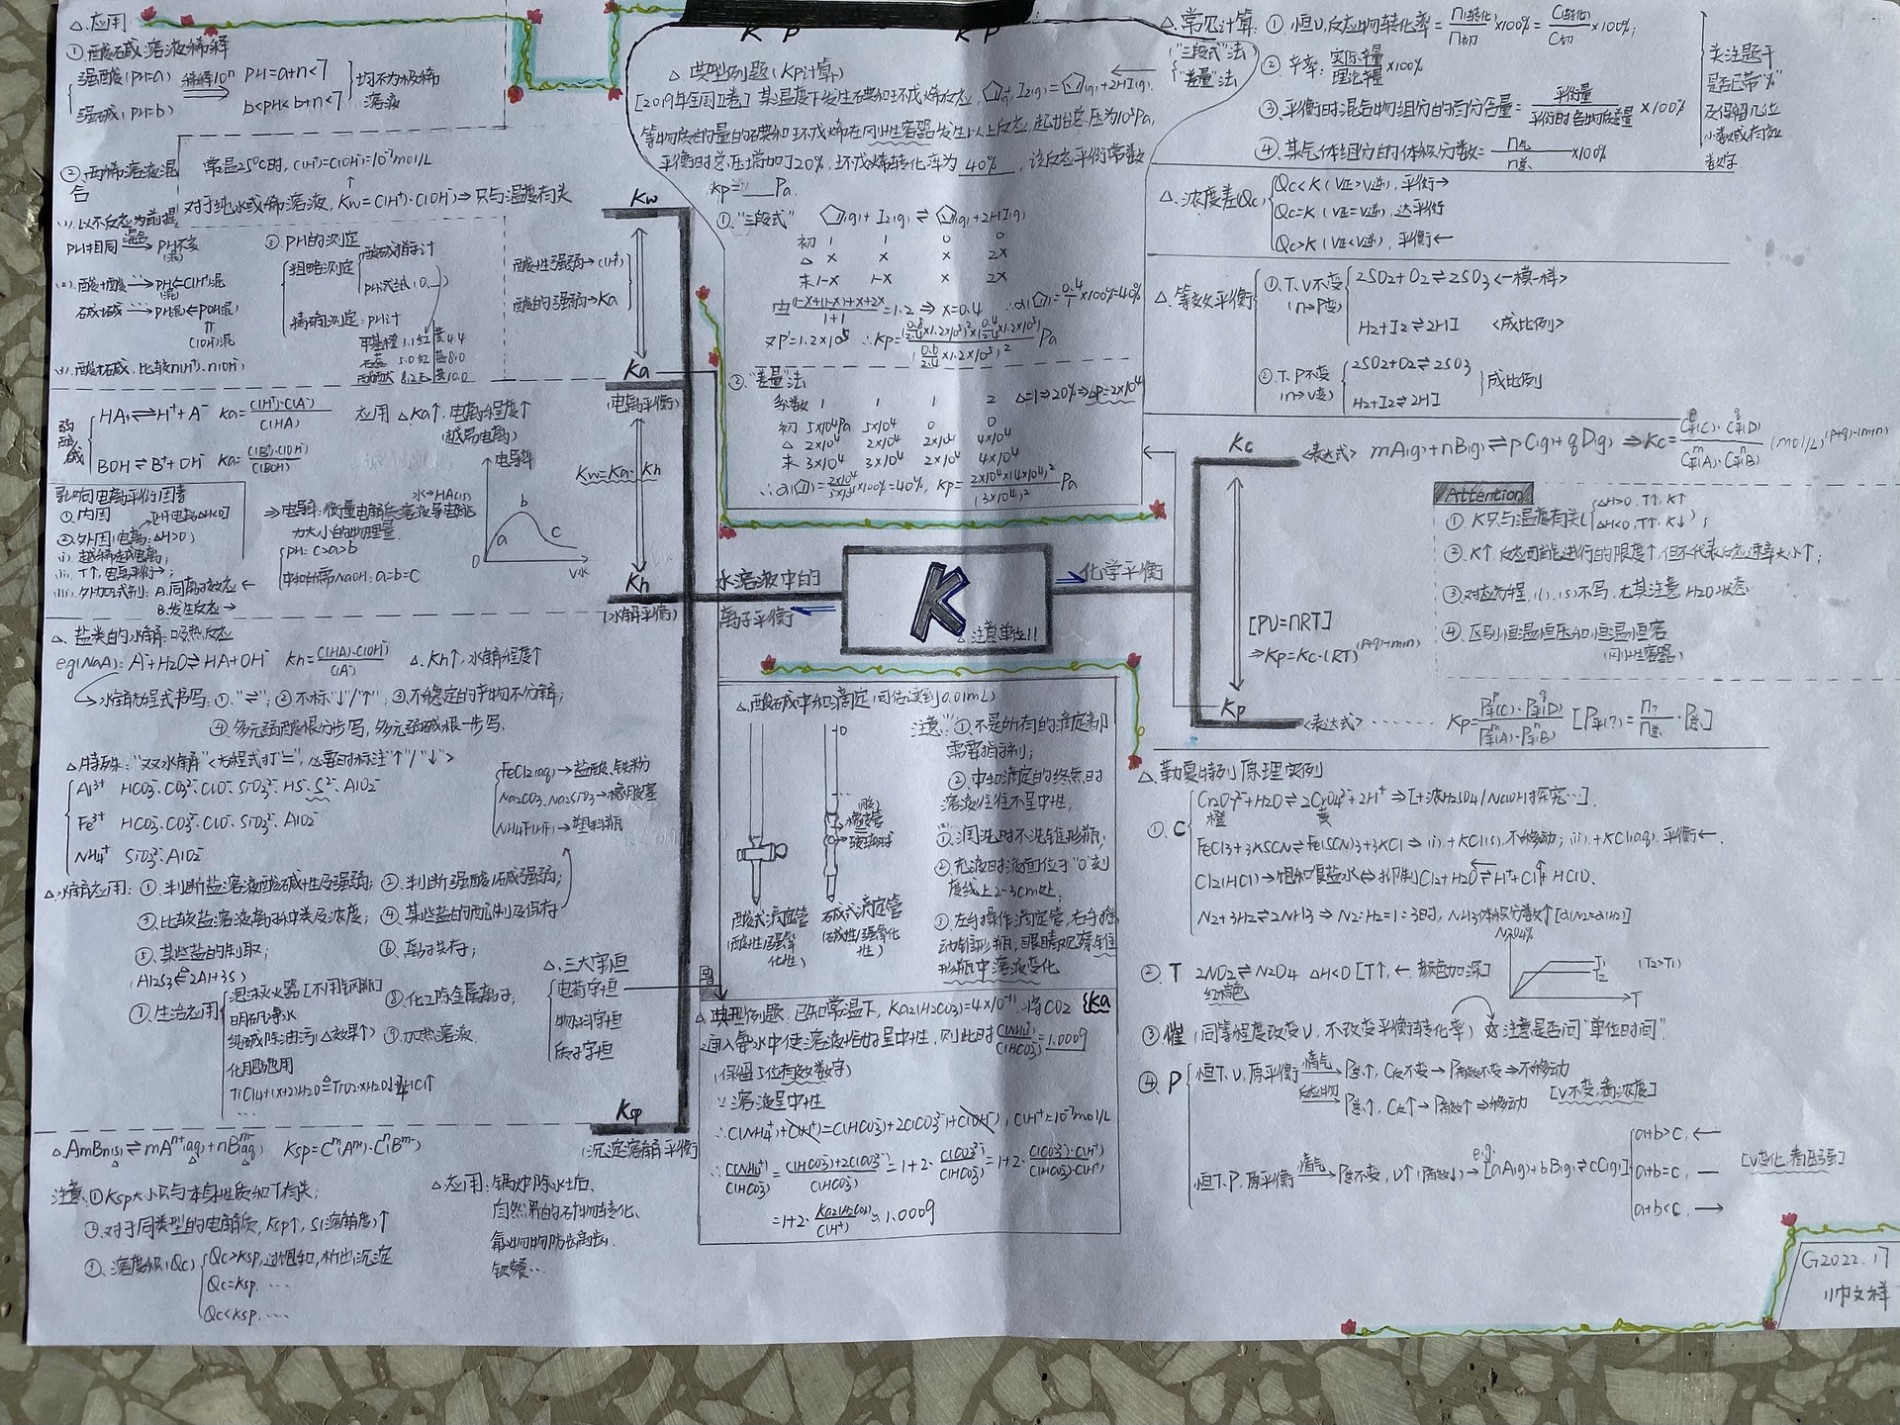 △.应用
①酸碱溶液稀释
强酸(PH=a) 稀释10ⁿ PH=a+n<7
强碱(PH=b) b<PH<b+n<7
均不为极稀溶液
②两稀溶液混合
常温25℃时, C(H⁺)=C(OH⁻)=10⁻⁷mol/L
对于纯水或稀溶液, Kw=C(H⁺)·C(OH⁻)→只与温度有关
(1).以不反应为前提
PH相同→PH不变(混)
(2).酸+酸→PH混←C(H⁺)混
碱+碱→PH混←POH混
C(OH⁻)混
(3).酸+碱,比较n(H⁺)、n(OH⁻)
③PH的测定
粗略测定
酸碱指示计
PH试纸
精确测定:PH计
甲基橙 3.1红黄4.4
石蕊 5.0红蓝8.0
酚酞 8.2无 10.0
Kw
酸性强弱→C(H⁺)
酸的强弱→Ka
Ka
(电离平衡)
Kw=Ka·Kh
Kh
(水解平衡)
弱酸碱
HA⇌H⁺+A⁻ Ka=C(H⁺)·C(A⁻)/C(HA)
BOH⇌B⁺+OH⁻ Ka=C(B⁺)·C(OH⁻)/C(BOH)
应用 △Ka↑,电离程度↑
(越易电离)
影响电离平衡因素
①内因
②外因(电离:△H>0)
i).越稀越电离;
ii).T↑,电离平衡→;
iii).外加试剂: A.同离子效应←
B.发生反应→
⇒电导率:衡量电解质溶液导电能力大小的物理量.
PH: c>a>b
中和所需NaOH: a=b=c
电导率
水→HAc(s)
a
b
c
0
V水
△.盐类的水解:吸热反应
eg(NaA): A⁻+H2O⇌HA+OH⁻ Kh=C(HA)·C(OH⁻)/C(A⁻) △.Kh↑,水解程度↑
→水解方程式书写:①."⇌";②不标"↓"/"↑";③不稳定的产物不分解;
④多元弱酸根分步写,多元弱碱根一步写.
△特殊:"双水解"<方程式打"=",必要时标注"↑"/"↓">
Al³⁺ HCO3⁻、CO3²⁻、ClO⁻、SiO3²⁻、HS⁻、S²⁻、AlO2⁻
Fe³⁺ HCO3⁻、CO3²⁻、ClO⁻、SiO3²⁻、AlO2⁻
NH4⁺ SiO3²⁻、AlO2⁻
FeCl2(aq)→盐酸、铁粉
Na2CO3、Na2SiO3→橡胶塞
NH4F(HF)→塑料瓶
△水解应用:①判断盐溶液酸碱性及强弱;②判断强酸(碱)强弱;
③比较盐溶液离子种类及浓度;④某些盐的配制及保存
⑤某些盐的制取;⑥离子共存;
(Al2S3⇐2Al+3S)
⑦.生活应用
泡沫灭火器[不用钢瓶]
明矾净水
纯碱除油污(△效果↑)
化肥施用
TiCl4+(x+2)H2O≜TiO2·xH2O↓+4HCl↑
…
⑧化工除金属离子;
⑨加热溶液.
△.三大守恒
电荷守恒
物料守恒
质子守恒
Ksp
(沉淀溶解平衡)
△.AmBn(s)⇌mAⁿ⁺(aq)+nBᵐ⁻(aq) Ksp=Cᵐ(Aⁿ⁺)·Cⁿ(Bᵐ⁻)
注意:①Ksp大小只与本身性质和T有关;
②对于同类型的电解质,Ksp↑,S(溶解度)↑
③.浓度积(Qc)
Qc>Ksp,过饱和,析出沉淀
Qc=Ksp, …
Qc<Ksp, …
△应用:锅炉除水垢、
自然界的矿物转化、
氟化物防齿
钡餐…
K P K P
△典型例题(Kp计算)
[2019年全国Ⅱ卷]某温度下发生碘和环戊烯反应, (g)+I2(g)=(g)+2HI(g).
等物质的量的碘和环戊烯在刚性容器发生以上反应,起始总压为10⁵Pa,
平衡时总压增加了20%,环戊烯转化率为 40% ,该反应平衡常数
Kp=__Pa.
①."三段式" (g)+I2(g)⇌(g)+2HI(g)
初 1 1 0 0
△ x x x 2x
末 1-x 1-x x 2x
由(1-x)+(1-x)+x+2x/1+1=1.2⇒x=0.4 ∴α()=0.4/1×100%=40%
又P'=1.2×10⁵ ∴Kp=(0.8/2.4×1.2×10⁵)²×(0.4/2.4×1.2×10⁵)/(0.6/2.4×1.2×10⁵)² Pa
②."差量"法
系数 1 1 1 2 △=1⇒20%⇒△P=2×10⁴
初 5×10⁴Pa 5×10⁴ 0 0
△ 2×10⁴ 2×10⁴ 2×10⁴ 4×10⁴
末 3×10⁴ 3×10⁴ 2×10⁴ 4×10⁴
∴α()=2×10⁴/5×10⁴×100%=40%, Kp=2×10⁴×(4×10⁴)²/(3×10⁴)² Pa
水溶液中的
离子平衡
K
△注意单位!!
化学平衡
△.酸碱中和滴定(可估读到0.01mL)
0
橡皮管
玻璃球
酸式滴定管
(酸性/强氧化性)
碱式滴定管
(碱性/强氧化性)
注意:①不是所有的滴定都需要指示剂;
②中和滴定的终点时溶液往往不呈中性;
①.润洗时不洗锥形瓶;
②充液时液面位于"0"刻度线上2-3cm处;
③左手操作滴定管,右手摇动锥形瓶,眼睛观察锥形瓶中溶液变化
△典型例题.已知常温下, Ka2(H2CO3)=4×10⁻¹¹.将CO2 {Ka
通入氨水中使溶液恰好呈中性,则此时C(NH4⁺)/C(HCO3⁻)=1.0009
(保留5位有效数字)
∵溶液呈中性
∴C(NH4⁺)+C(H⁺)=C(HCO3⁻)+2C(CO3²⁻)+C(OH⁻), C(H⁺)=10⁻⁷mol/L
∴C(NH4⁺)/C(HCO3⁻)=C(HCO3⁻)+2C(CO3²⁻)/C(HCO3⁻)=1+2·C(CO3²⁻)/C(HCO3⁻)=1+2·C(CO3²⁻)·C(H⁺)/C(HCO3⁻)·C(H⁺)
=1+2·Ka2(H2CO3)/C(H⁺)≈1.0009
△.常见计算:
("三段式"法
"差量"法
①恒V,反应物转化率=n(转化)/n初×100%=C(转化)/C初×100%;
②产率:实际产量/理论产量×100%
③平衡时混合物组分的百分含量=平衡量/平衡时各物质总量×100%
④某气体组分的体积分数=n气/n总×100%
关注题干是否已带"%"及保留几位小数或有效数字
△.浓度差(Qc)
Qc<K(V正>V逆),平衡→
Qc=K(V正=V逆),达平衡
Qc>K(V正<V逆),平衡←
△.等效平衡
①.T、V不变
(n→P变)
2SO2+O2⇌2SO3<一模一样>
H2+I2⇌2HI <成比例>
②.T、P不变
(n→V变)
2SO2+O2⇌2SO3
H2+I2⇌2HI
成比例
Kc
<表达式> mA(g)+nB(g)⇌pC(g)+qD(g) ⇒Kc=Cᵖ平(C)·C^q平(D)/Cᵐ平(A)·Cⁿ平(B) (mol/L)^(p+q)-(m+n)
Attention
①.K只与温度有关(△H>0,T↑,K↑
△H<0,T↑,K↓);
②.K↑,反应可能进行的限度↑,但不代表反应速率大小↑;
③.对应方程,(l)、(s)不写,尤其注意H2O状态
④.区别恒温恒压和恒温恒容
(刚性容器)
[PV=nRT]
⇒Kp=Kc·(RT)^(p+q)-(m+n)
Kp
<表达式>…… Kp=Pᵖ平(C)·P^q平(D)/Pᵐ平(A)·Pⁿ平(B) [P平(?)=n?/n总·P总]
△.勒夏特列原理实例
①.C
Cr2O7²⁻+H2O⇌2CrO4²⁻+2H⁺⇒[+浓H2SO4/NaOH探究…].
橙 黄
FeCl3+3KSCN⇌Fe(SCN)3+3KCl⇒i).+KCl(s),不移动; ii).+KCl(aq),平衡←.
Cl2(HCl)→饱和食盐水⇔抑制Cl2+H2O⇌H⁺+Cl⁻+HClO.
N2+3H2⇌2NH3⇒N2:H2=1:3时,NH3体积分数↑[α(N2)=α(H2)]
②T 2NO2⇌N2O4 △H<0[T↑,←,颜色加深]
红棕色
T1
T2
(T2>T1)
T
③催(同等程度改变V,不改变平衡转化率) 注意是否问"单位时间".
④P
恒T、V,原平衡 惰气→P总↑,C反不变→P有效不变→不移动
反应物→P总↑,C反↑→P有效↑⇒移动
[V不变,看浓度]
恒T、P,原平衡 惰气→P总不变,V↑(P有效↓)→
e.g.
[aA(g)+bB(g)⇌cC(g)]
a+b>c, ←
a+b=c, —
a+b<c, →
[V变化,看压强]
G2022.17
帅文样